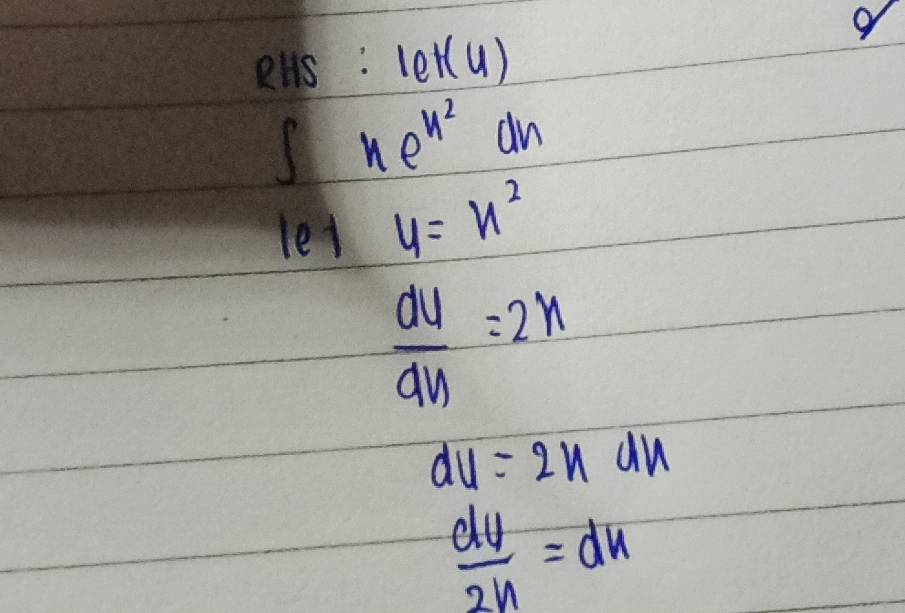 RHS : let(u)
∫ x e^x² dx
let u = x²
du/dx = 2x
du = 2x dx
du/2x = dx